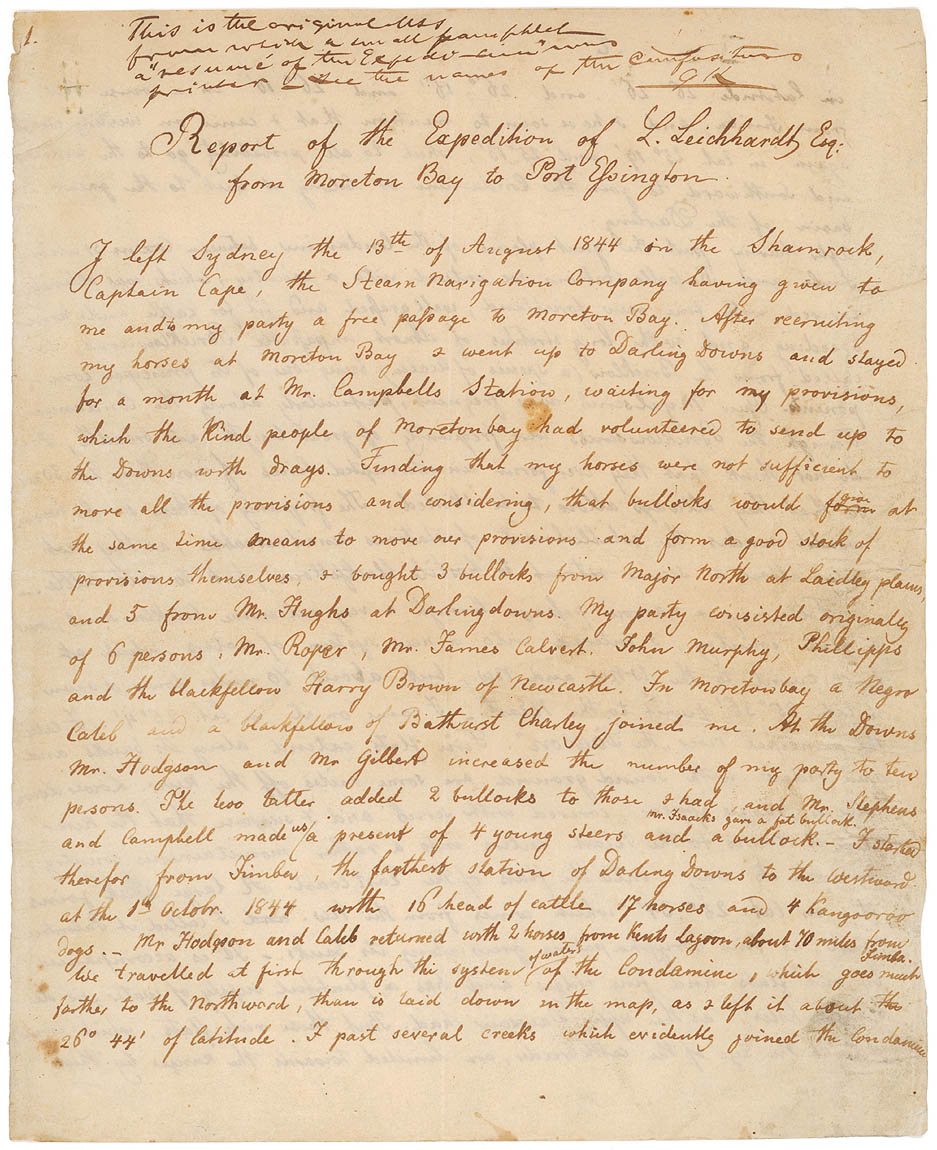 1.
This is the original MSS
from which a small pamphlet
a "resumé of the Expedition" was
printed see the names of the Compositors
Report of the Expedition of L. Leichhardt Esq:
from Moreton Bay to Port Essington.
I left Sydney the 13th of August 1844 in the Shamrock,
Captain Cape, the Steam Navigation Company having given to
me and to my party a free passage to Moreton Bay. After recruiting
my horses at Moreton Bay I went up to Darling Downs and stayed
for a month at Mr. Campbells Station, waiting for my provisions,
which the Kind people of Moretonbay had volunteered to send up to
the Downs with drays. Finding that my horses were not sufficient to
move all the provisions and considering, that bullocks would form give at
the same time means to move our provisions and form a good stock of
provisions themselves, I bought 3 bullocks from Major North at Laidley plains,
and 5 from Mr. Hughs at Darlingdowns. My party consisted originaley
of 6 persons, Mr. Roper, Mr. James Calvert. John Murphy, Phillipps
and the blackfellow Harry Brown of Newcastle. In Moretonbay a Negro
Caleb and a blackfellow of Bathurst Charley joined me. At the Downs
Mr. Hodgson and Mr Gilbert increased the number of my party to ten
persons. The two latter added 2 bullocks to those I had, and Mr. Stephens
mr. Isaacks gave a fat bullock.
and Campbell made us a present of 4 young steers and a bullock. – I started
therefor from Jimba, the farthest station of Darling Downs to the Westward.
at the 1st Octobr. 1844 with 16 head of cattle 17 horses and 4 Kangooroo
dogs. – Mr Hodgson and Caleb returned with 2 horses from Kents Lagoon, about 70 miles from
Jimba.
We travelled at first through the system of waters of the Condamine, which goes much
farther to the Northward, than is laid down in the map, as I left it about the
26° 44' of latitude. I past several creeks which evidently joined the Condamine